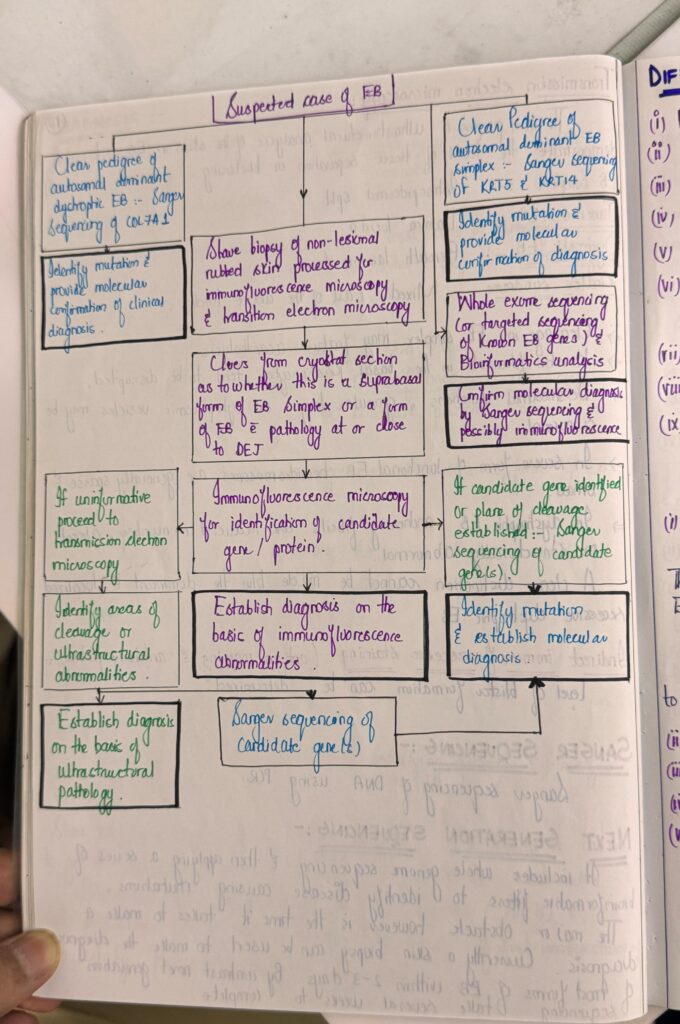 Suspected case of EB
Clear pedigree of
autosomal dominant
dystrophic EB :- Sanger
sequencing of COL7A1
Identify mutation &
provide molecular
confirmation of clinical
diagnosis.
Shave biopsy of non-lesional
rubbed skin processed for
immunofluorescence microscopy
& transition electron microscopy
Clues from cryostat section
as to whether this is a suprabasal
form of EB simplex or a form
of EB c̄ pathology at or close
to DEJ
Immunofluorescence microscopy
for identification of candidate
gene / protein.
Establish diagnosis on the
basic of immunofluorescence
abnormalities.
Sanger sequencing of
candidate gene(s)
If uninformative
proceed to
transmission electron
microscopy
Identify areas of
cleavage or
ultrastructural
abnormalities.
Establish diagnosis
on the basic of
ultrastructural
pathology.
Clear Pedigree of
autosomal dominant EB
simplex :- Sanger sequencing
of KRT5 & KRT14
Identify mutation &
provide molecular
confirmation of diagnosis
Whole exome sequencing
(or targeted sequencing
of Known EB genes) &
Bioinformatics analysis
Confirm molecular diagnosis
by Sanger sequencing &
possibly immunofluorescence
If candidate gene identified
or plane of cleavage
established :- Sanger
sequencing of candidate
gene(s).
Identify mutation
& establish molecular
diagnosis.
DIF
(i)
(ii)
(iii)
(iv)
(v)
(vi)
(vii)
(viii)
(ix)
(i)
to
(ii)